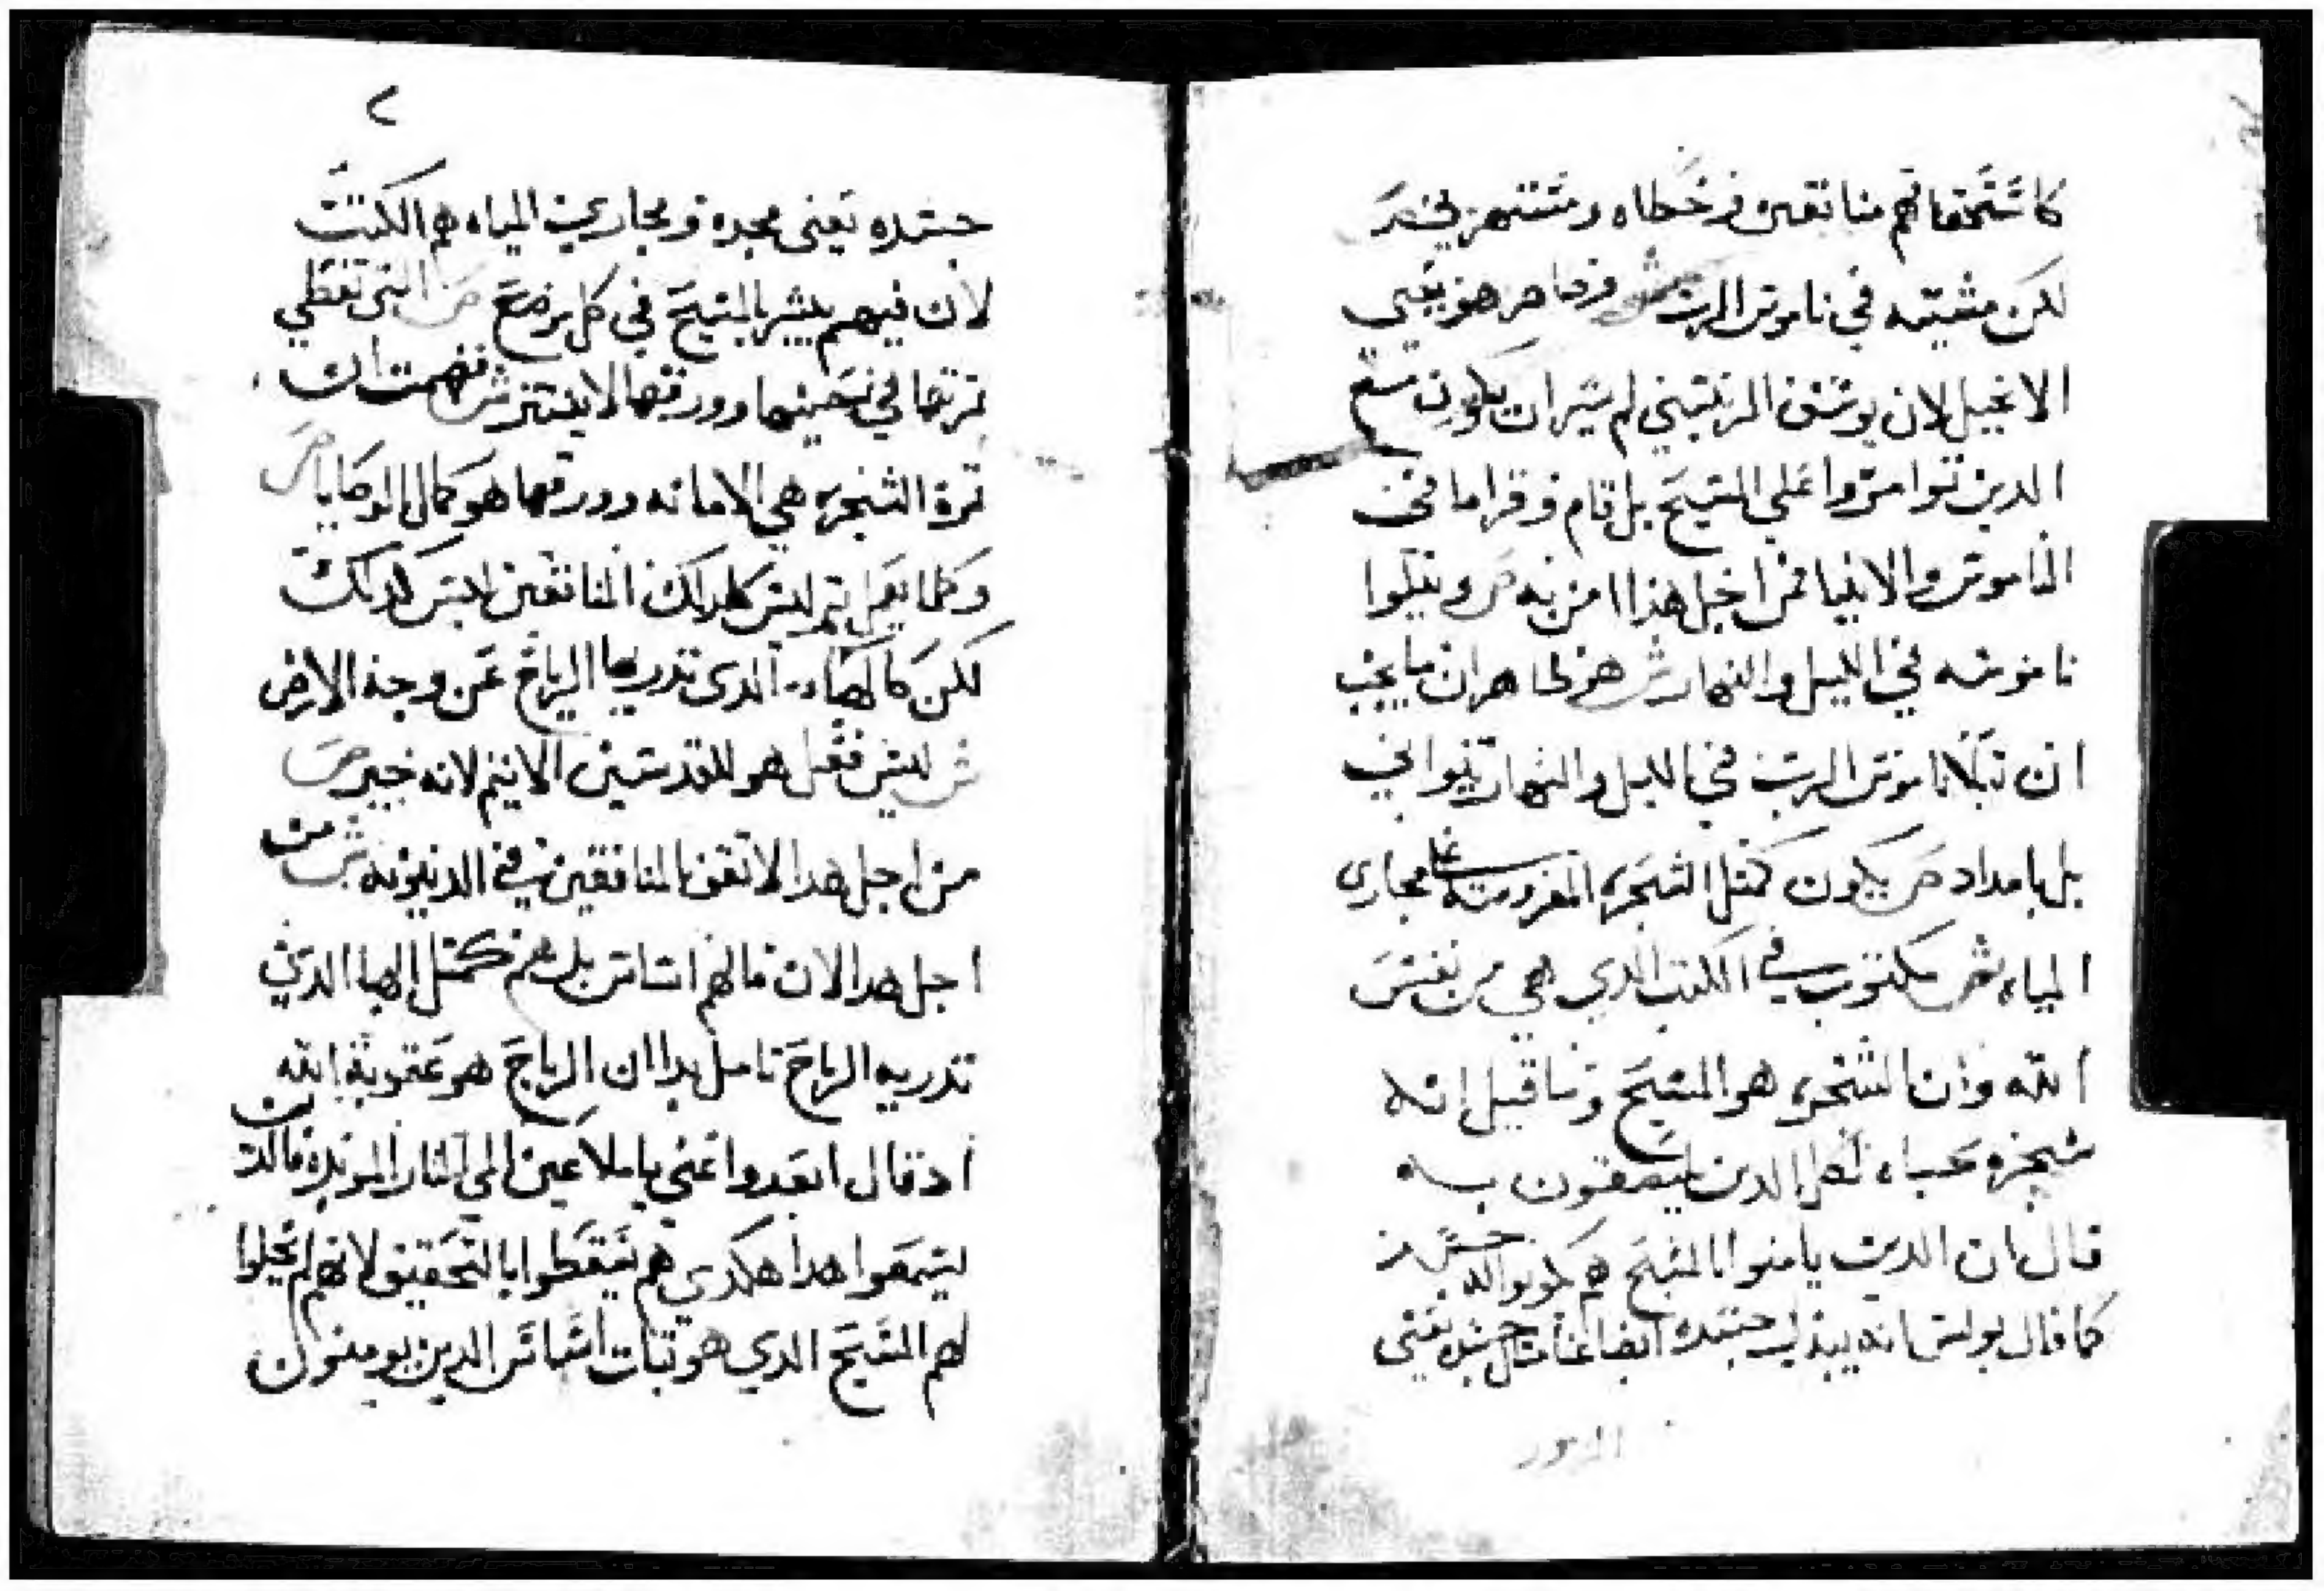 كاستحقاقهم منافقين وخطاه ومستهزيين ص
لكن مشيته في ناموس الرب ش وظاهر هو يعني
الانجيل لان يوسف الذي لم يسر ان يكون مع
الدين توامروا علي المسيح بل قام وقرا ما في
الناموس والانبيا فمن اجل هذا امن به ص ويتلوا
ناموسه في الليل والنهار ش هو ظاهر ان ما يجب
ان نتلا ناموس الرب في الليل والنهار بتواني
بل بامداد ص يكون كمتل الشجره المغروسه علي مجاري
المياه ش مكتوب في الكتب الدي هي من نفس
الله وان الشجره هو المسيح وما قيل انه
شجرة حياه لكل الدين يلتصقون به
قال ان الدين يامنوا بالمسيح هم
كما قال بولس انه جسده ايضا جسده يعني
المزمور
٢
جسده يعني مجده ومجاري المياه هم الكتب
لان فيهم يبشر بالمسيح في كل موضع ص التي تعطي
ثمرتها في حينها وورقها لا ينتثر ش فهمت ان
ثمرة الشجره هي الامانه وورقها هو كمال الوصايا ص
وكلما يعمل يتم ليس كدلك المنافقين ليس كدلك
لكن كالهباء الدي تدريه الرياح عن وجه الارض
ش ليس فعل هو للقديسين الاثيم لانه خبير ص
من اجل هدا لا تقف المنافقين في الدينونه ش من
اجل هدا الان ما لهم اساس بل هم كمتل الهبا الدي
تدريه الرياح تامل بدا ان الرياح هو عقوبة الله
اد قال ابعدوا عني يا ملاعين الي النار الموبده فالدين
ليسمعوا هدا هكدي هم يسقطوا بالتحقيق لانهم لم يجعلوا
لهم المسيح الدي هو تبات اساس الدين يومنون